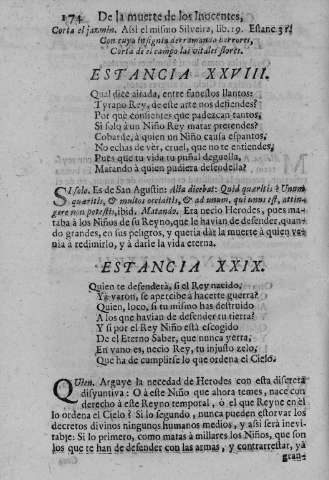 174 De la muerte de los Inocentes,
Corta el jazmin. Assi el mismo Silveira, lib. 19. Estanc 31.
Con cuya insignia derramando horrores,
Corta de el campo las vitales flores.
ESTANCIA XXVIII.
Qual dize airada, entre funestos llantos:
Tyrano Rey, de este arte nos defiendes?
Por què consientes que padezcan tantos,
Si solo à un Niño Rey matar pretendes?
Cobarde, à quien un Niño causa espantos,
No echas de vèr, cruel, que no te entiendes,
Pues que tu vida tu puñal deguella,
Matando à quien pudiera defendella?
Si solo. Es de San Agustin: Alta dicebat: Quid quaritis è Unum
quaritis, & multos occiditis, & ad unum, qui unus est, attin-
gere non potestis, ibid. Matando. Era necio Herodes, pues ma-
taba à los Niños de su Reyno, que le havian de defender, quan-
do grandes, en sus peligros, y queria dàr la muerte à quien ve-
nia à redimirlo, y à darle la vida eterna.
ESTANCIA XXIX.
Quien te defenderà, si el Rey nacido,
Ya varon, se apercibe à hacerte guerra?
Quien, loco, si tu mismo has destruido
A los que havian de defender tu tierra?
Y si por el Rey Niño està escogido
De el Eterno Saber, que nunca yerra,
En vano es, necio Rey, tu injusto zelo,
Que ha de cumplirse lo que ordena el Cielo.
Quien. Arguye la necedad de Herodes con esta discreta
disyuntiva: O à este Niño que ahora temes, nace con
derecho à este Reyno temporal, ò el que Reyne en èl
lo ordena el Cielo? Si lo segundo, nunca pueden estorvar los
decretos divinos ningunos humanos medios, y assi serà inevi-
table: Si lo primero, como matas à millares los Niños, que son
los que te han de defender con las armas, y contrarrestar, yà
gran-